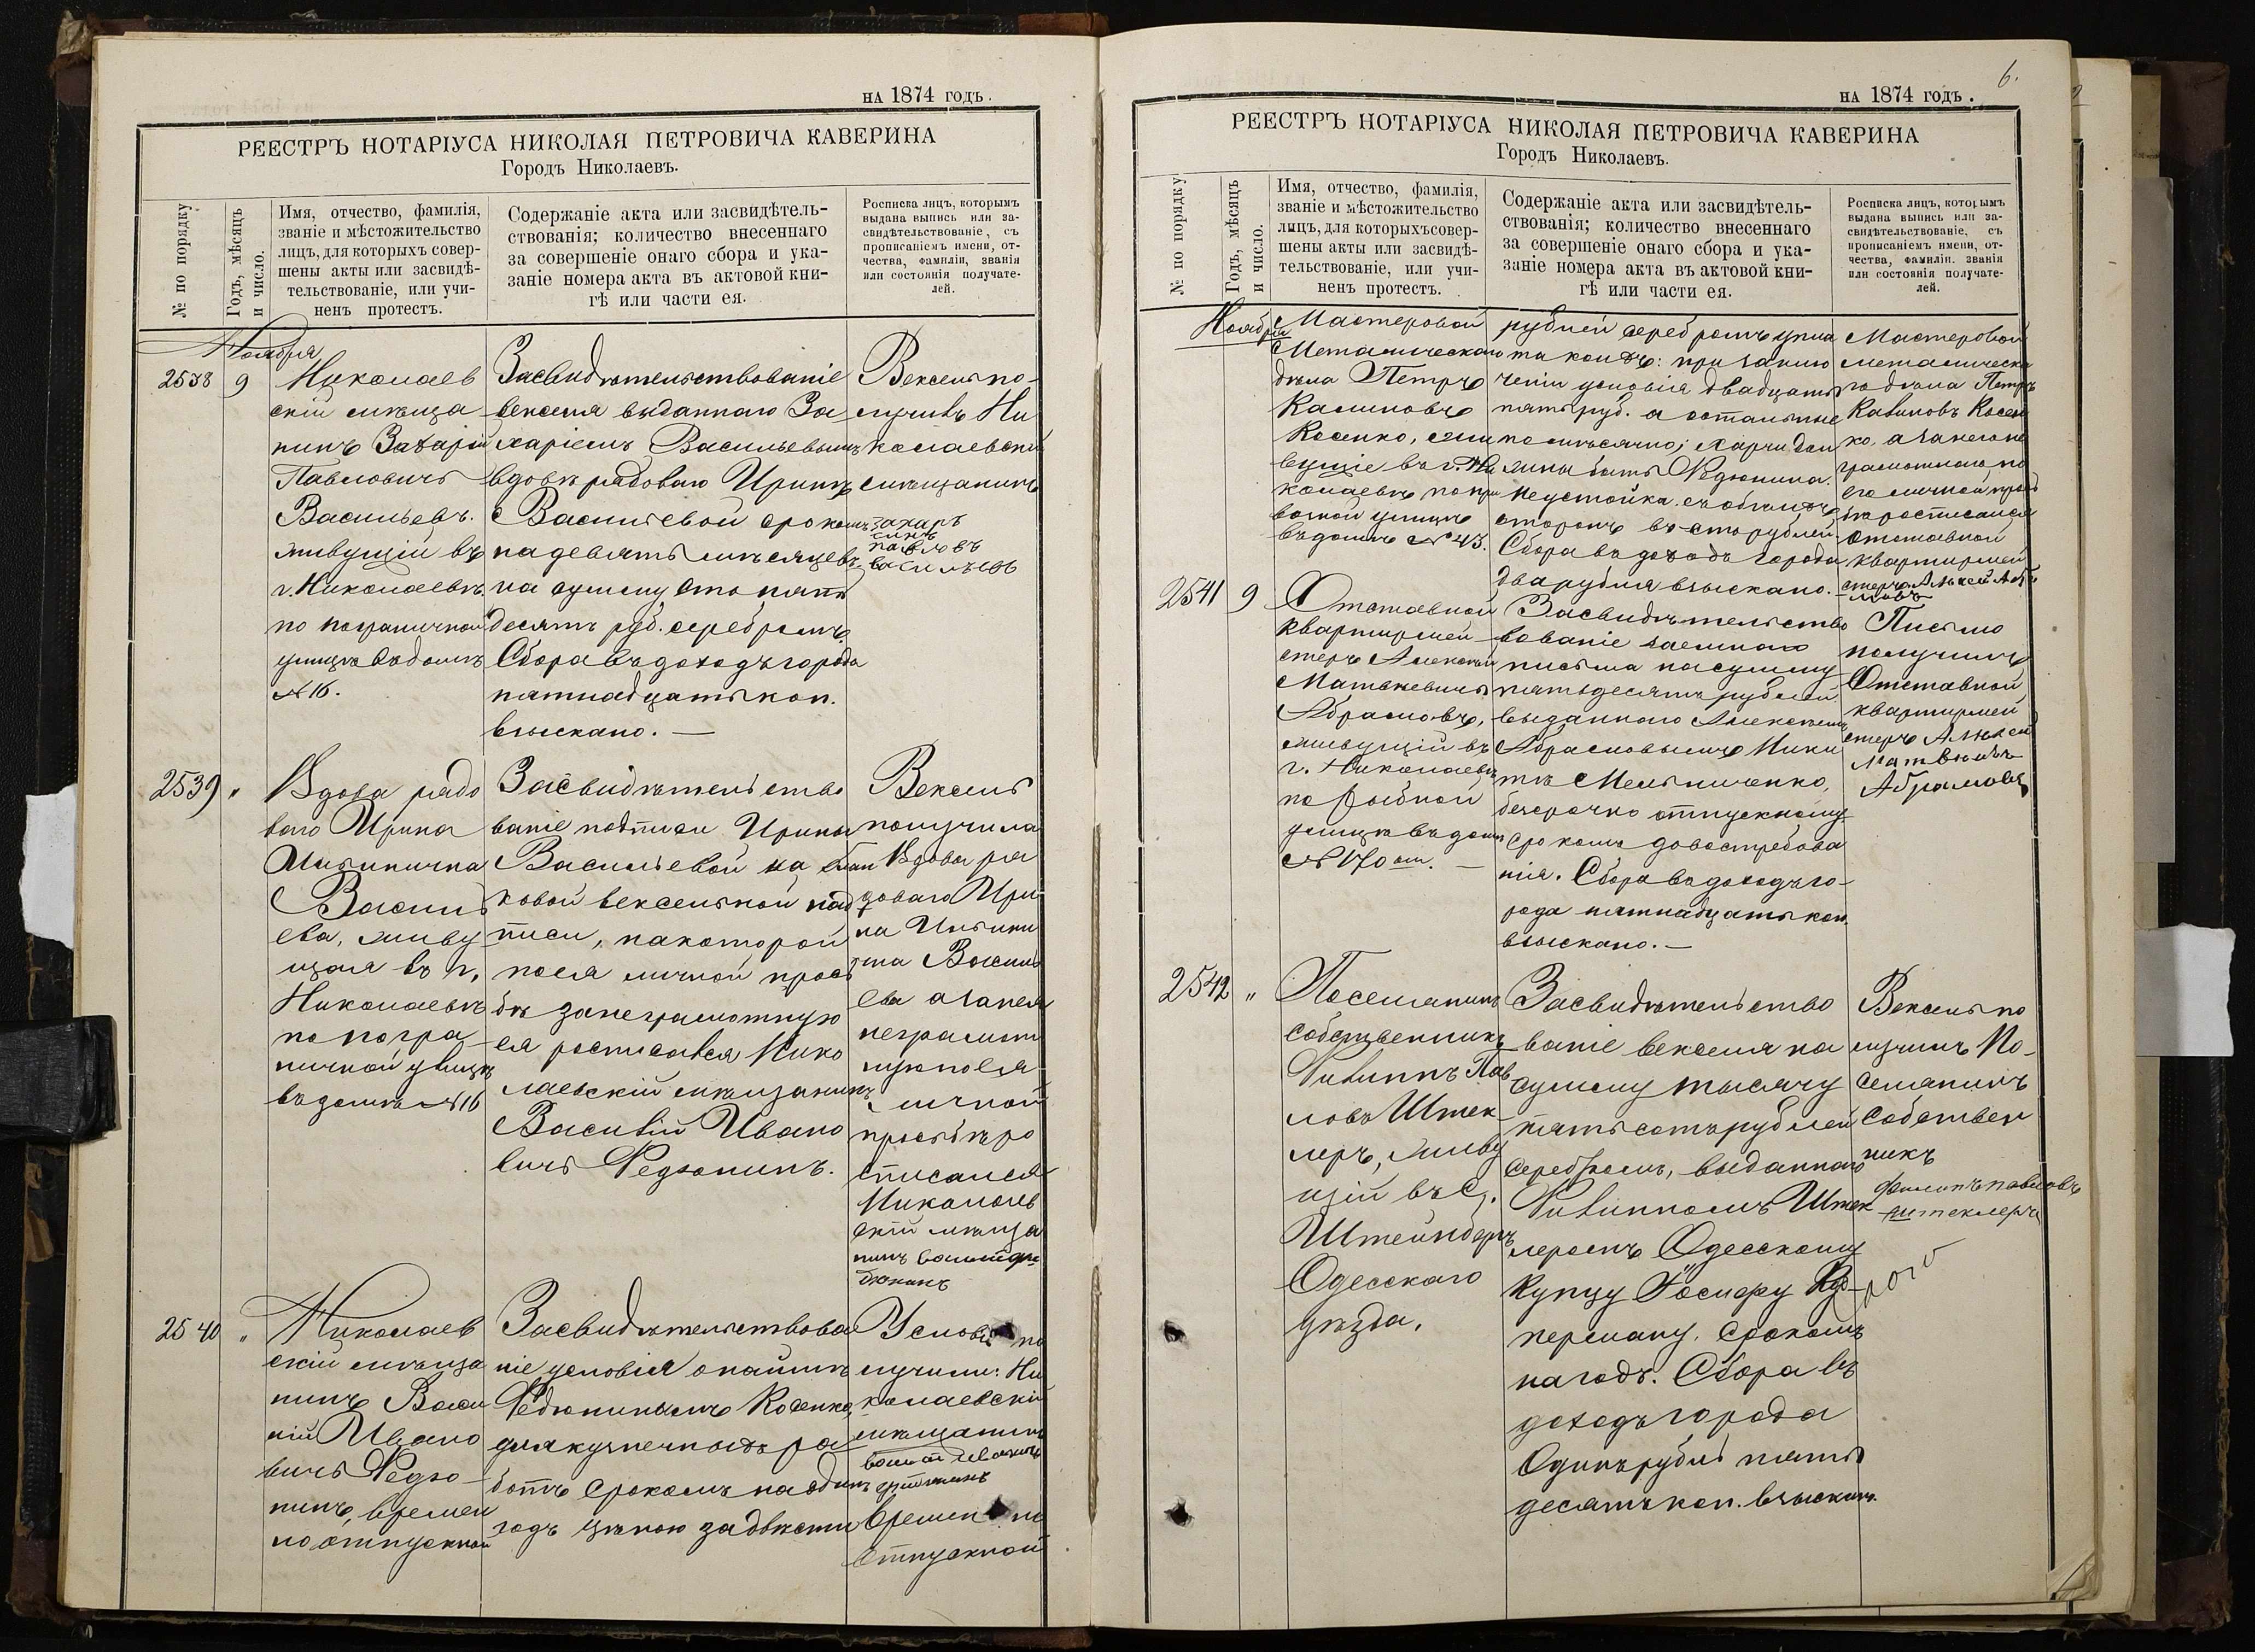 на 1874 годъ.
РЕЕСТРЪ НОТАРІУСА НИКОЛАЯ ПЕТРОВИЧА КАВЕРИНА
Городъ Николаевъ.
№ по порядку
Годъ, мѣсяцъ
и число.
Имя, отчество, фамилія,
званіе и мѣстожительство
лицъ, для которыхъ совер-
шены акты или засвидѣ-
тельствованіе, или учи-
ненъ протестъ.
Содержаніе акта или засвидѣтель-
ствованія; количество внесеннаго
за совершеніе онаго сбора и ука-
заніе номера акта въ актовой кни-
гѣ или части ея.
Росписка лицъ, которымъ
выдана выпись или за-
свидѣтельствованіе, съ
прописаніемъ имени, от-
чества, фамиліи, званія
или состоянія получате-
лей.
Ноября
2538
9
Николаев
скій мѣща
нинъ Захарій
Павловичъ
Васильевъ.
живущій въ
г. Николаевѣ
по пограничной
улицѣ въ домѣ
№ 16.
Засвидѣтельствованіе
векселя выданнаго За
харіемъ Васильевымъ
вдовѣ рядоваго Иринѣ
Васильевой срокомъ
на девять мѣсяцевъ
на сумму сто пять
десятъ руб. серебромъ.
Сбора въ доходъ города
пятнадцать коп.
взыскано. —
Вексель по-
лучилъ Ни
колаевскій
мѣщанинъ
захаръ
сынъ
павловъ
василъевъ
2539
"
Вдова рядо
ваго Ирина
Ильинична
Василь
ева, живу
щая въ г.
Николаевѣ
по погра-
ничной улицѣ
въ домѣ № 16
Засвидѣтельство
ваніе подписи Ирины
Васильевой на блан
ковой вексельной над
писи, на которой
по ея личной прось
бѣ за неграмотную
ея росписался Нико
лаевскій мѣщанинъ
Василій Ивано
вичъ Федюнинъ.
Вексель
получила
Вдова ря
доваго Ири
на Ильини
чна Василь
ева а за нея
неграмот
ную по ея
личной
просьбѣ ро
списался
Николаев
скій мѣща
нинъ
2540
"
Николаев
скій мѣща
нинъ Васи
лій Ивано
вичъ Федю-
нинъ, времен
но отпускной
Засвидѣтельствова
ніе условія о наймѣ
Федюнинымъ Косенко,
для кузнечныхъ ра
ботъ срокомъ на одинъ
годъ цѣною за двѣсти
Условіе по
лучили: Ни
колаевскій
мѣщанинъ
Времен но
отпускной
6.
на 1874 годъ.
РЕЕСТРЪ НОТАРІУСА НИКОЛАЯ ПЕТРОВИЧА КАВЕРИНА
Городъ Николаевъ.
№ по порядку
Годъ, мѣсяцъ
и число.
Имя, отчество, фамилія,
званіе и мѣстожительство
лицъ, для которыхъ совер-
шены акты или засвидѣ-
тельствованіе, или учи-
ненъ протестъ.
Содержаніе акта или засвидѣтель-
ствованія; количество внесеннаго
за совершеніе онаго сбора и ука-
заніе номера акта въ актовой кни-
гѣ или части ея.
Росписка лицъ, которымъ
выдана выпись или за-
свидѣтельствованіе, съ
прописаніемъ имени, от-
чества, фамиліи, званія
или состоянія получате-
лей.
Ноября
Мастеровой
Металическаго
дѣла Петръ
Калиновъ
Косенко, жи
вущіе въ г. Ни
колаевѣ по при
возной улицѣ
въ домѣ № 43.
рублей серебромъ упла
та коихъ: при заклю
ченіи условія двадцать
пять руб. а остальные
помѣсячно; харчи дол
жны быть Федюнина.
Неустойка съ обѣихъ
сторонъ въ сто рублей.
Сбора въ доходъ города
два рубля взыскано. —
Мастеровой
металическа
го дѣла Петръ
Калиновъ Косен
ко, а за него не
грамотнаго по
его личной прось
бѣ росписался
Отставной
квартирмей
стеръ Алексей Абра
мовъ
2541
9
Отставной
квартирмей
стеръ Алексѣй
Матвѣевичъ
Абрамовъ,
живущій въ
г. Николаевѣ
по Рыбной
улицѣ въ домѣ
№ 170
Засвидѣтельство
вованіе заемнаго
письма на сумму
пятьдесятъ рублей
выданнаго Алексѣемъ
Абрамовымъ Ники
тѣ Мельниченко,
безсрочно отпускному
срокомъ до востребова
нія. Сбора въ доходъ го-
рода пятнадцать коп.
взыскано. —
Письмо
получилъ
Отставной
квартирмей
стеръ Алексей
Абрамовъ
2542
"
Поселянинъ
собственникъ
Филиппъ Пав
ловъ Штек
леръ, живу
щій въ с.
Штейнбергъ
Одесскаго
уѣзда.
Засвидѣтельство
ваніе векселя на
сумму тысячу
пятьсотъ рублей
серебромъ, выданнаго
Филиппомъ Штек
леромъ Одесскому
купцу
перману. Срокомъ
на годъ. Сбора въ
доходъ города
Одинъ рубль пять
десятъ коп. взыскан.
Вексель по
лучилъ По-
селянинъ
Собствен
никъ
павловъ
штеклеръ